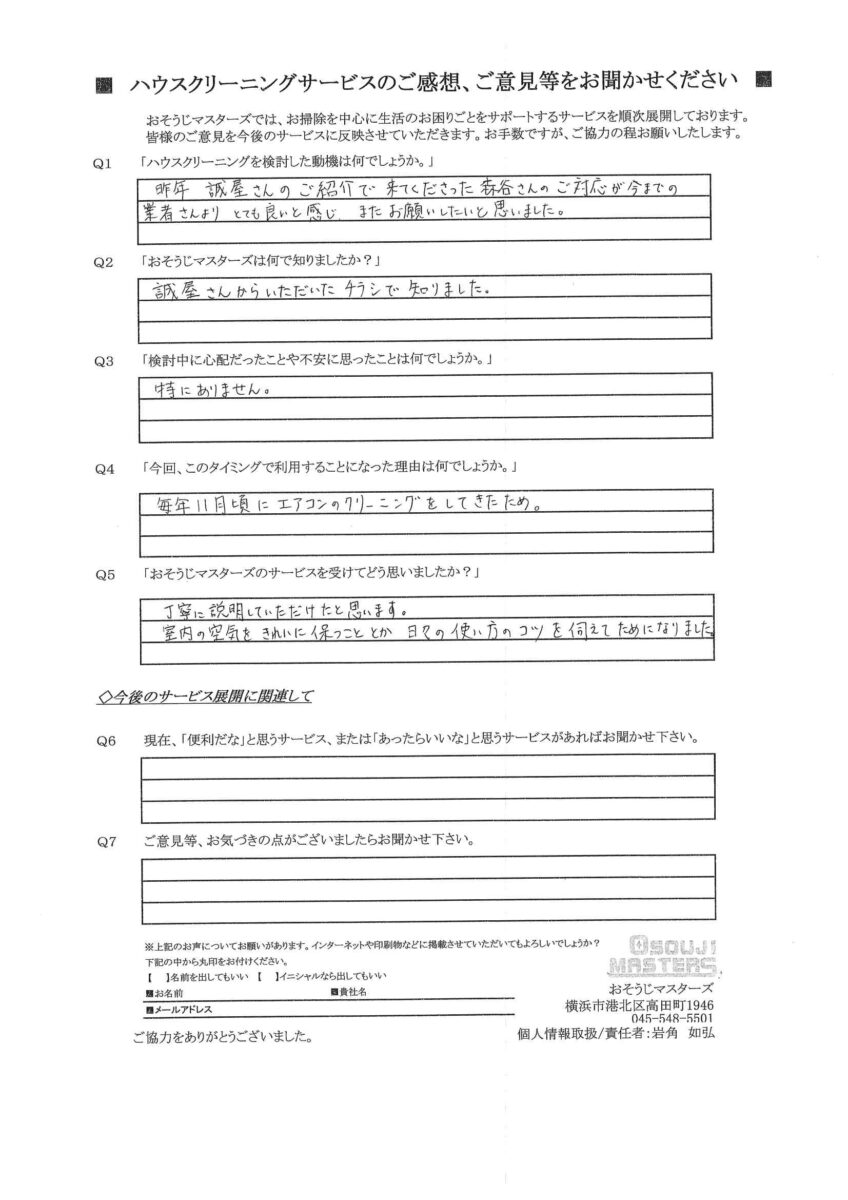 ■ ハウスクリーニングサービスのご感想、ご意見等をお聞かせください ■
おそうじマスターズでは、お掃除を中心に生活のお困りごとをサポートするサービスを順次展開しております。
皆様のご意見を今後のサービスに反映させていただきます。お手数ですが、ご協力の程お願いしたします。
Q1 「ハウスクリーニングを検討した動機は何でしょうか。」
昨年 誠屋さんのご紹介で来てくださった森谷さんのご対応が今までの
業者さんより とても良いと感じ、またお願いしたいと思いました。
Q2 「おそうじマスターズは何で知りましたか？」
誠屋さんからいただいたチラシで知りました。
Q3 「検討中に心配だったことや不安に思ったことは何でしょうか。」
特にありません。
Q4 「今回、このタイミングで利用することになった理由は何でしょうか。」
毎年11月頃にエアコンのクリーニングをしてきたため。
Q5 「おそうじマスターズのサービスを受けてどう思いましたか？」
丁寧に説明していただけたと思います。
室内の空気をきれいに保つこととか 日々の使い方のコツを伺えてためになりました
◇今後のサービス展開に関連して
Q6 現在、「便利だな」と思うサービス、または「あったらいいな」と思うサービスがあればお聞かせ下さい。
Q7 ご意見等、お気づきの点がございましたらお聞かせ下さい。
※上記のお声についてお願いがあります。インターネットや印刷物などに掲載させていただいてもよろしいでしょうか？
下記の中から丸印をお付けください。
【 】名前を出してもいい 【 】イニシャルなら出してもいい
■お名前 ■貴社名
■メールアドレス
ご協力をありがとうございました。
OSOUJI
MASTERS
おそうじマスターズ
横浜市港北区高田町1946
045-548-5501
個人情報取扱/責任者:岩角 如弘